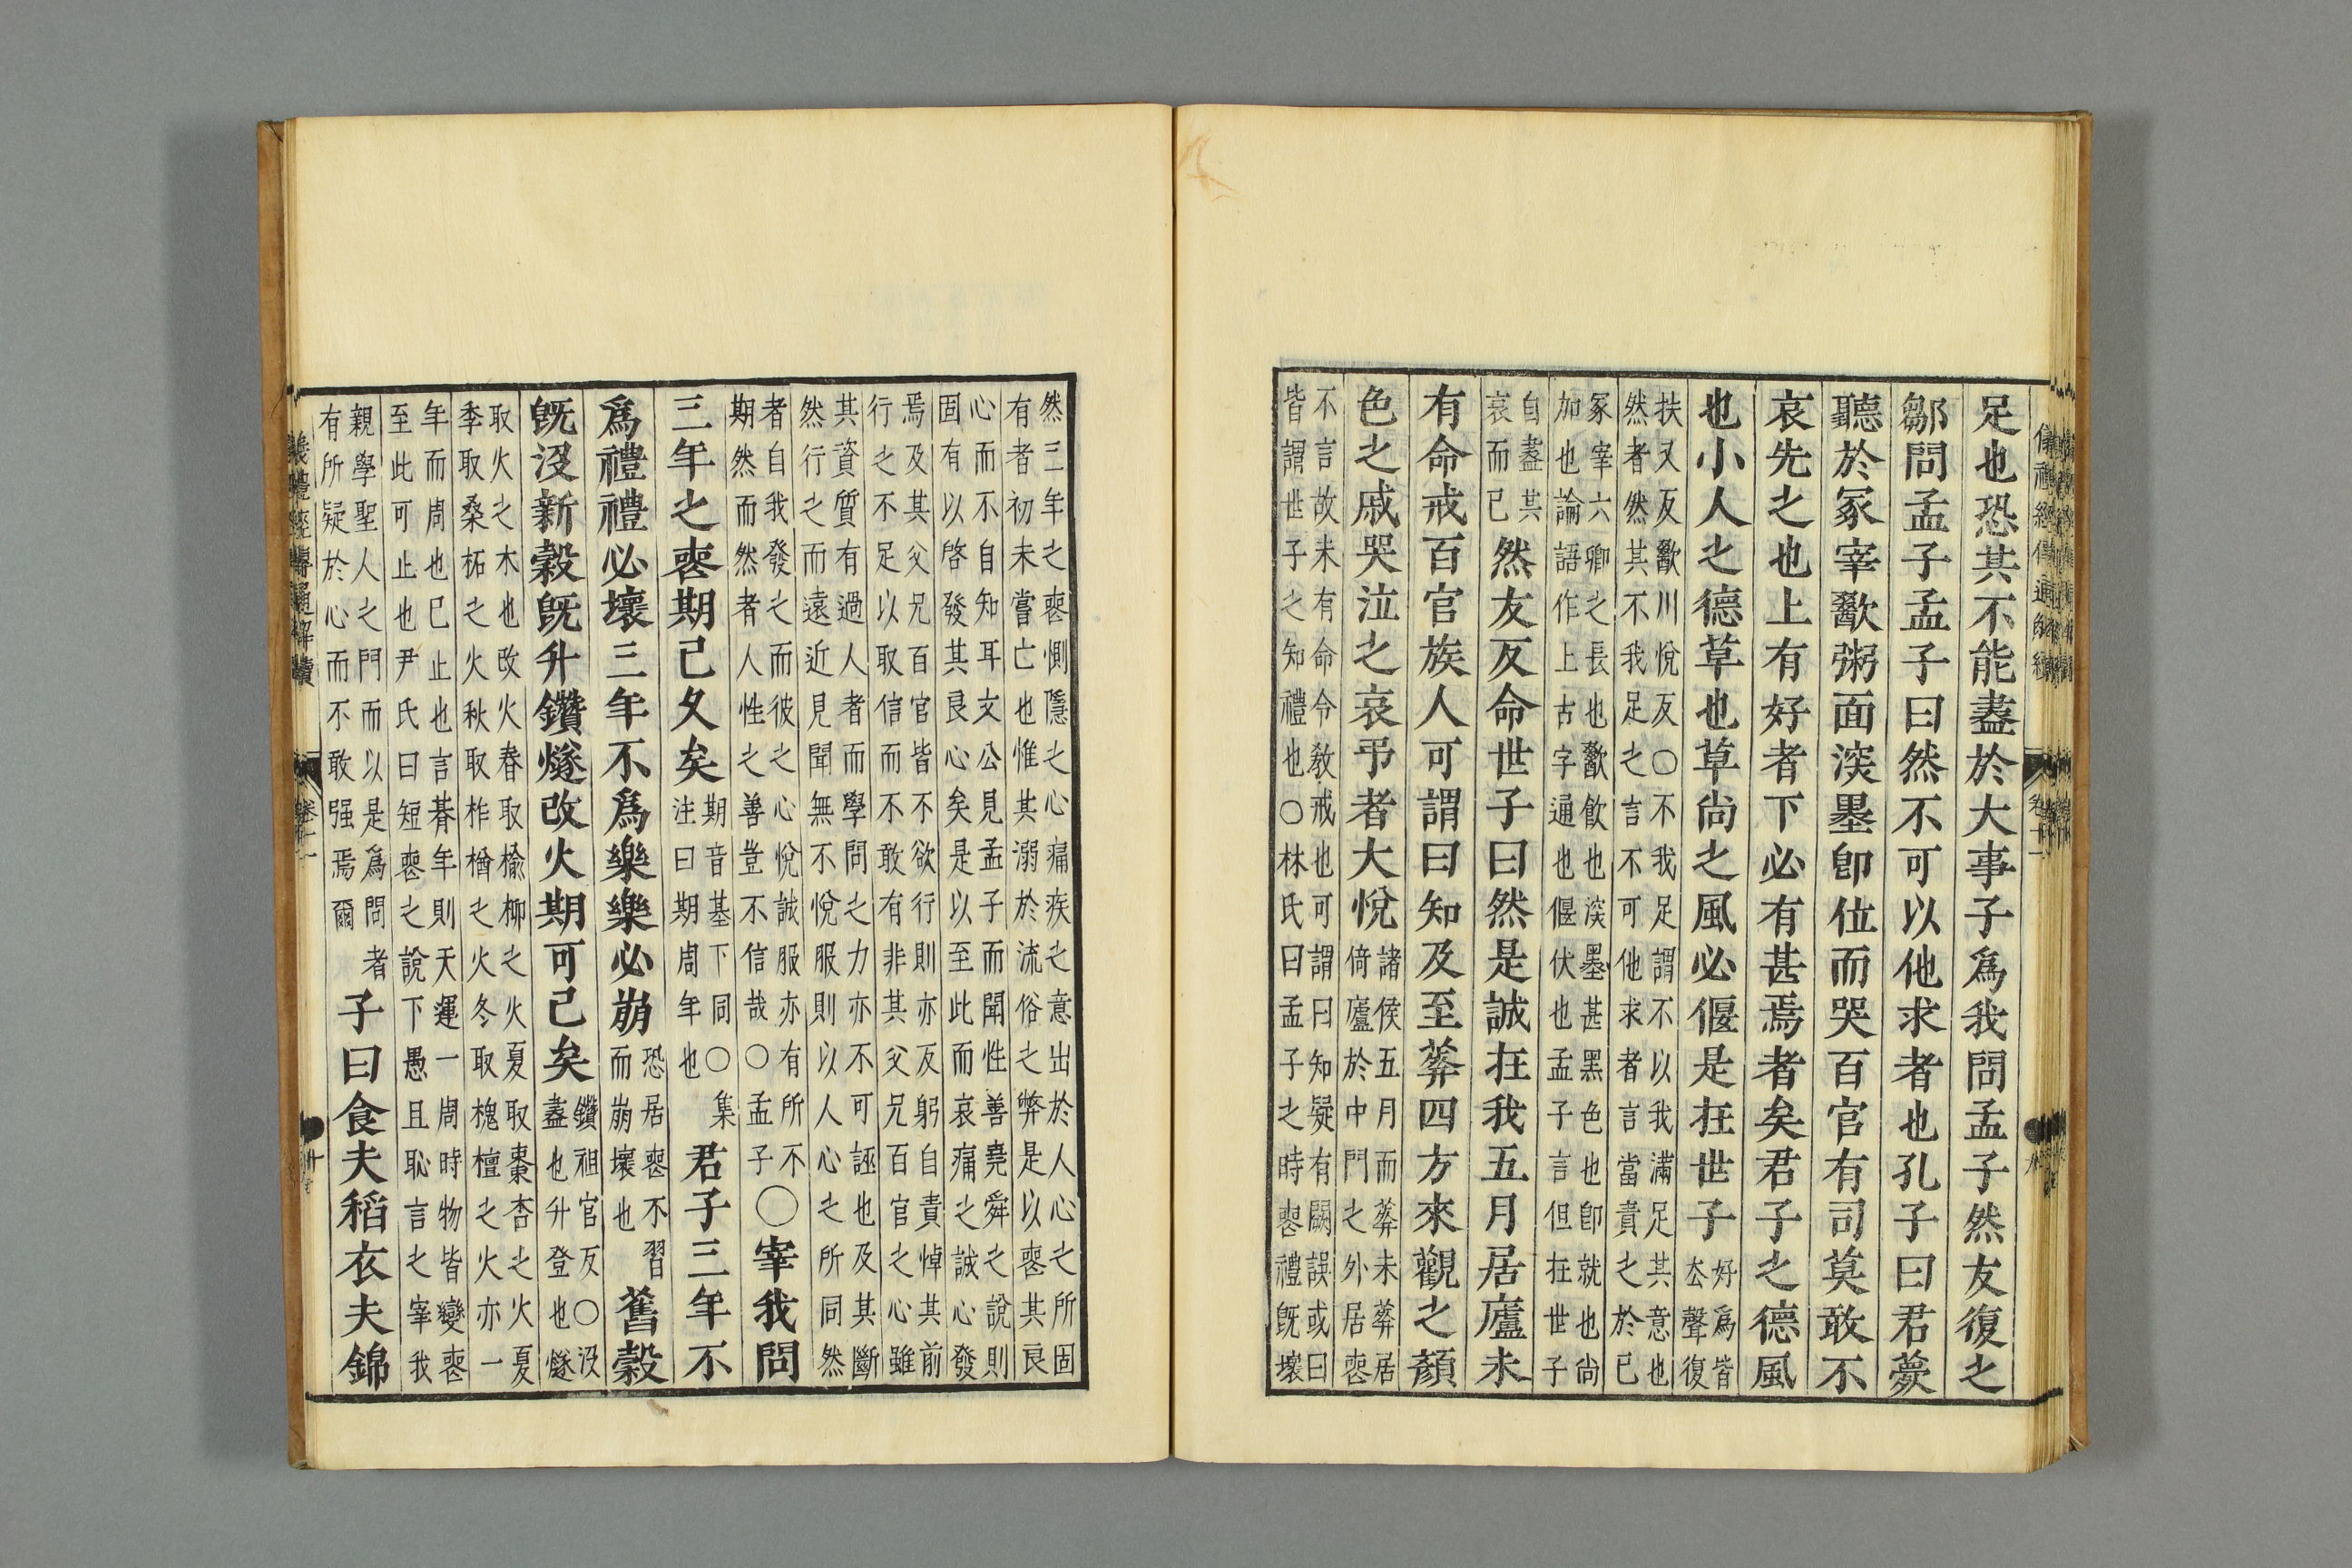 足也恐其不能盡於大事子爲我問孟子然友復之
鄒問孟子孟子曰然不可以他求者也孔子曰君薨
聽於冢宰歠粥面深墨卽位而哭百官有司莫敢不
哀先之也上有好者下必有甚焉者矣君子之德風
也小人之德草也草尚之風必偃是在世子好爲皆去聲復
扶又反歠川悅反○不我足謂不以我滿足其意也
然者然其不我足之言不可他求者言當責之於己
冢宰六卿之長也歠飲也深墨甚黑色也卽就也尚
加也論語作上古字通也偃伏也孟子言但在世子
自盡其哀而已然友反命世子曰然是誠在我五月居廬未
有命戒百官族人可謂曰知及至葬四方來觀之顏
色之戚哭泣之哀弔者大悅諸侯五月而葬未葬居倚廬於中門之外居喪
不言故未有命令敎戒也可謂曰知疑有闕誤或曰
皆謂世子之知禮也○林氏曰孟子之時喪禮旣壞
然三年之喪惻隱之心痛疾之意出於人心之所固
有者初未嘗亡也惟其溺於流俗之弊是以喪其良
心而不自知耳文公見孟子而聞性善堯舜之說則
固有以啓發其良心矣是以至此而哀痛之誠心發
焉及其父兄百官皆不欲行則亦反躬自責悼其前
行之不足以取信而不敢有非其父兄百官之心雖
其資質有過人者而學問之力亦不可誣也及其斷
然行之而遠近見聞無不悅服則以人心之所同然
者自我發之而彼之心悅誠服亦有所不期然而然者人性之善豈不信哉○孟子○宰我問
三年之喪期已久矣期音基下同○集注曰期周年也君子三年不
爲禮禮必壞三年不爲樂樂必崩恐居喪不習而崩壞也舊穀
旣沒新穀旣升鑽燧改火期可已矣鑽祖官反○沒盡也升登也燧
取火之木也改火春取榆柳之火夏取棗杏之火夏
季取桑柘之火秋取柞楢之火冬取槐檀之火亦一
年而周也已止也言朞年則天運一周時物皆變喪
至此可止也尹氏曰短喪之說下愚且恥言之宰我
親學聖人之門而以是爲問者有所疑於心而不敢强焉爾子曰食夫稻衣夫錦
儀禮經傳通解續